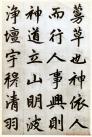 蒭草也神依人
而行人事興則
神道立山明波
淨壇宇穆清羽